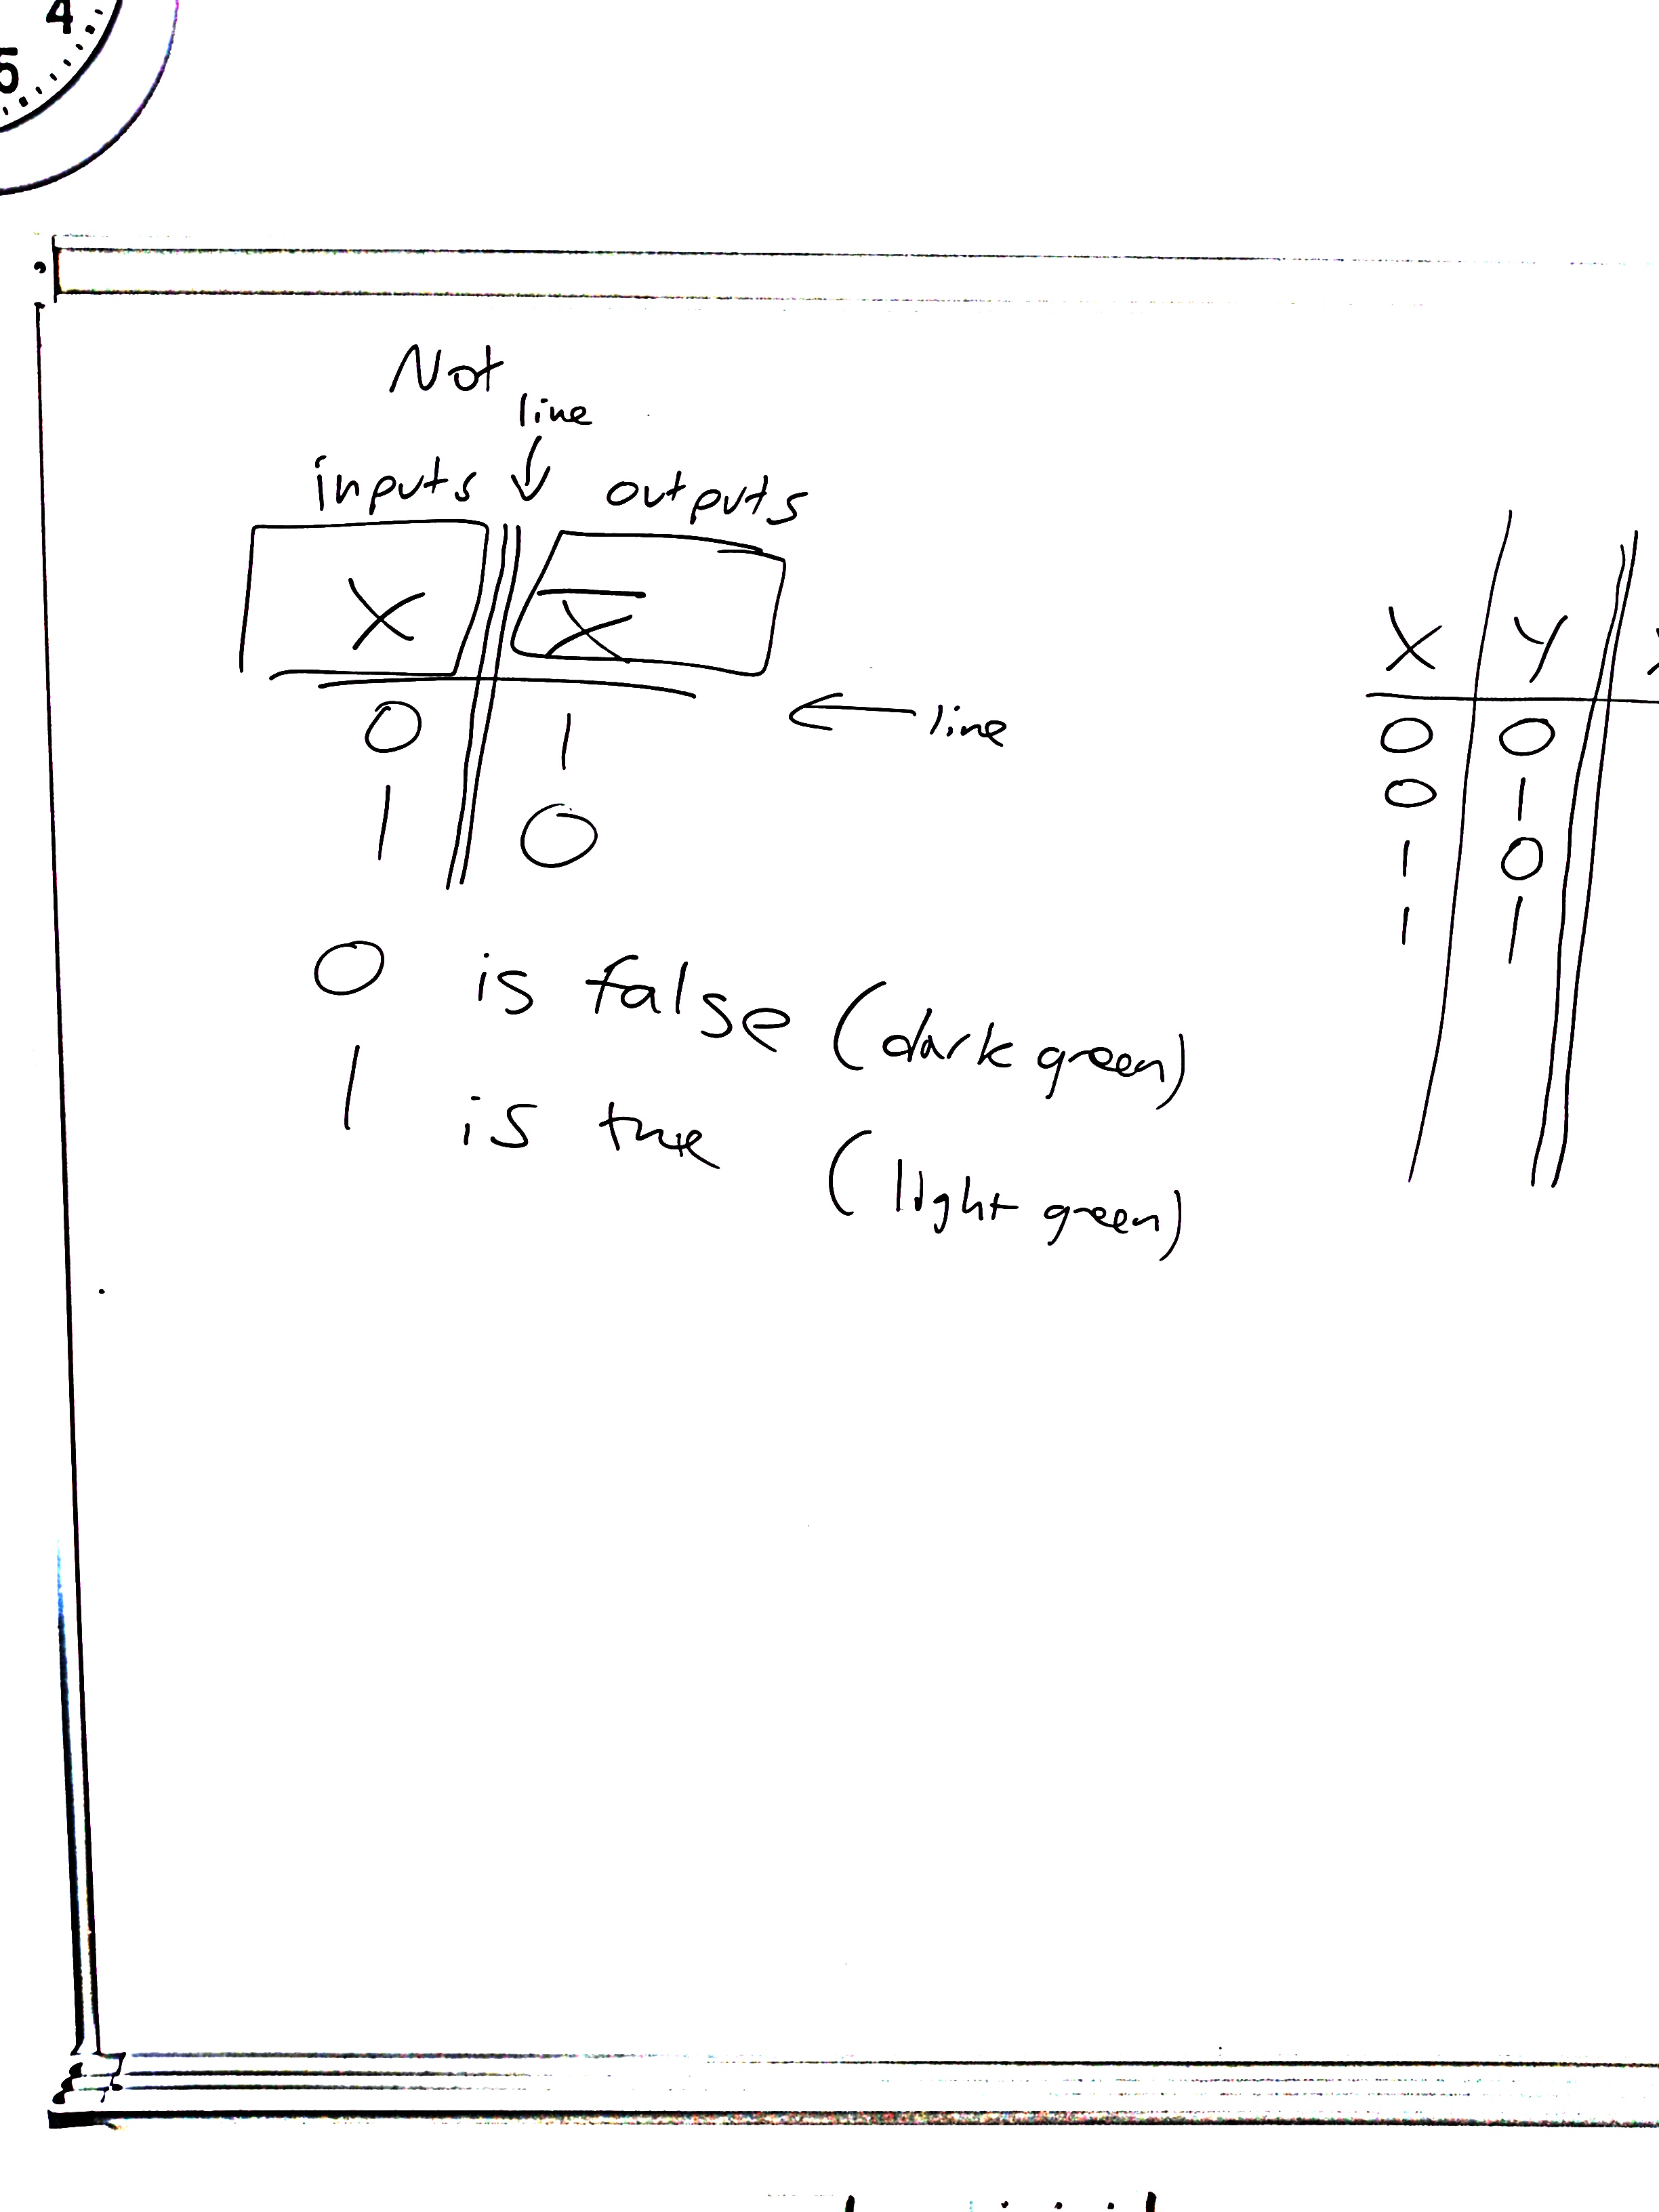 4
5
Not
line
inputs ↓ outputs
X X̅
0 1
← line
1 0
0 is false (dark green)
1 is true (light green)
X Y
0 0
0 1
1 0
1 1